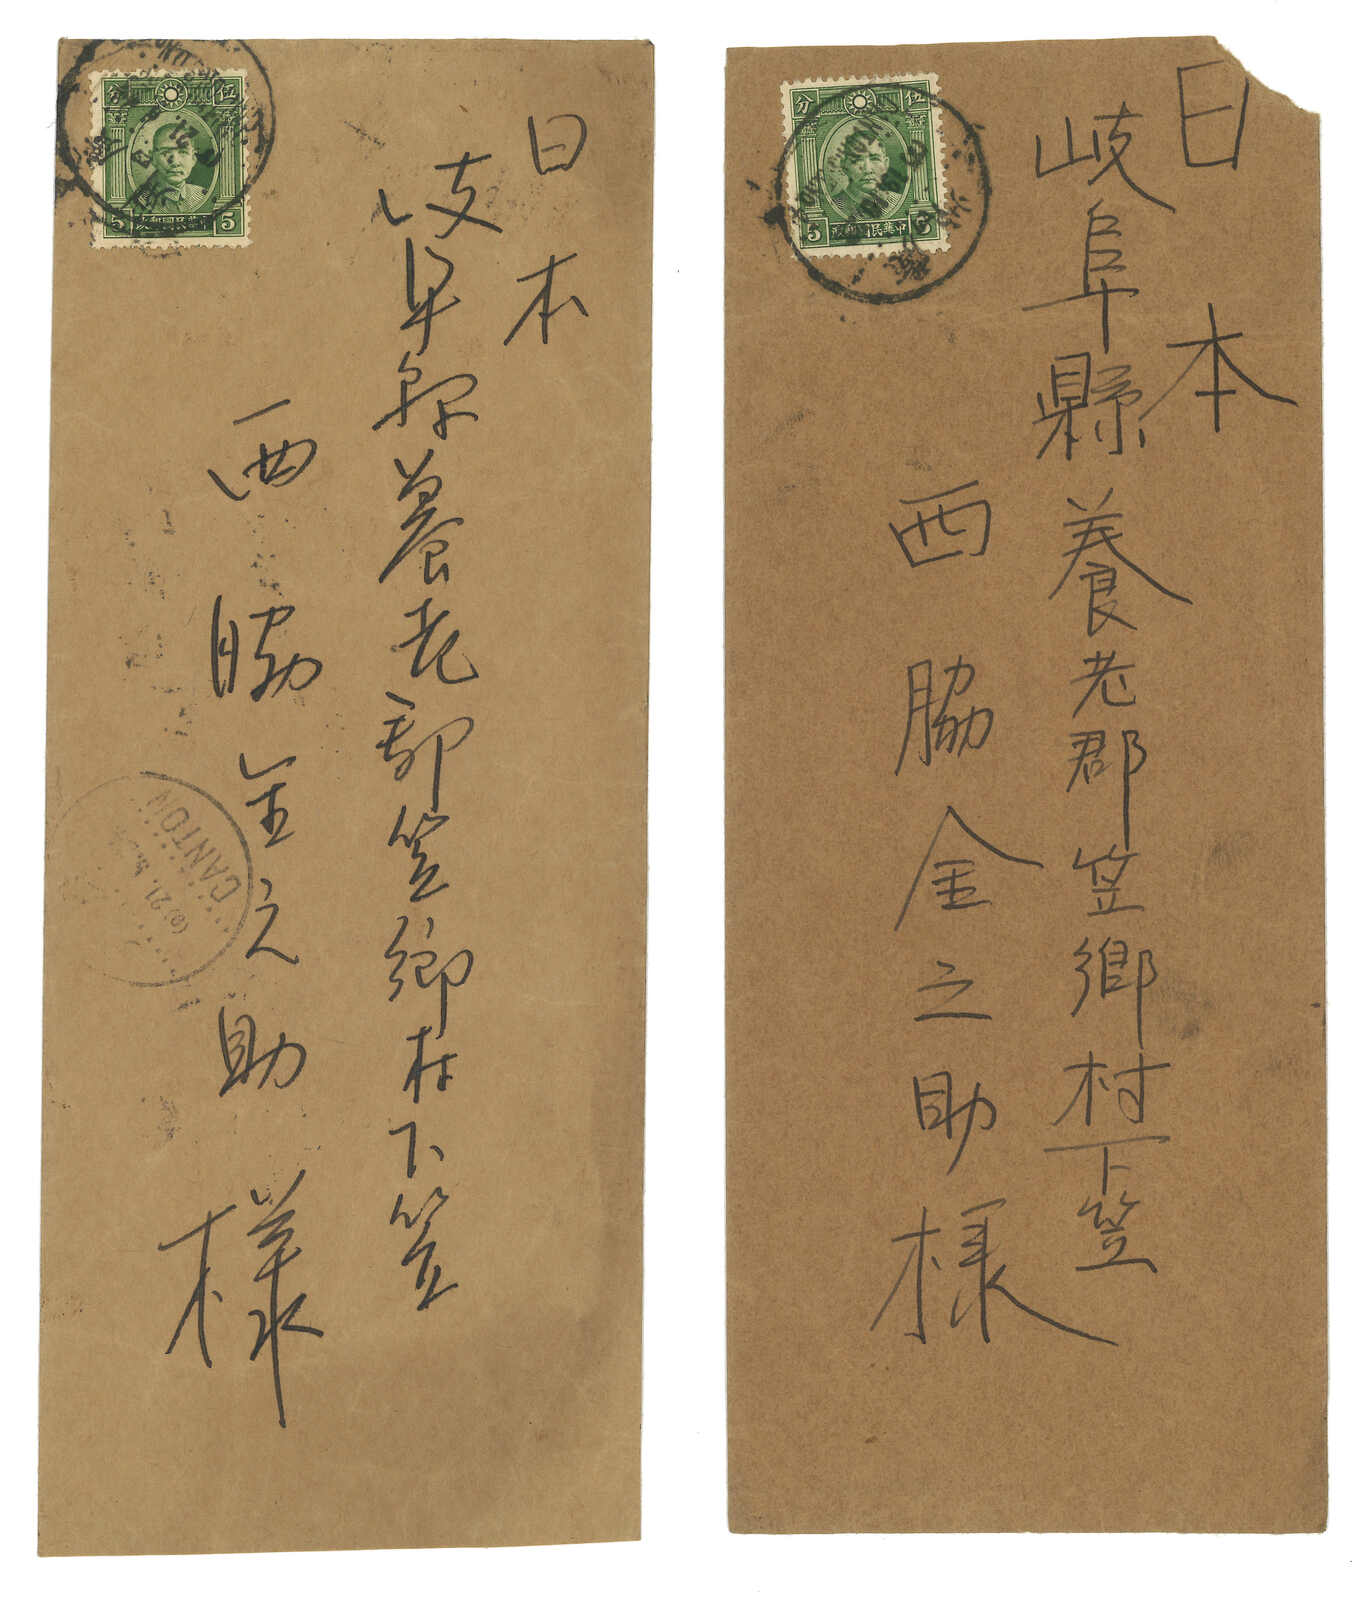 日本
岐阜縣養老郡笠郷村下笠
西脇金之助様
伍 分
5 5
中華民國郵政
CANTON
(e) 21. 5. 34
日本
岐阜縣養老郡笠郷村下笠
西脇金之助様
伍 分
5 5
中華民國郵政